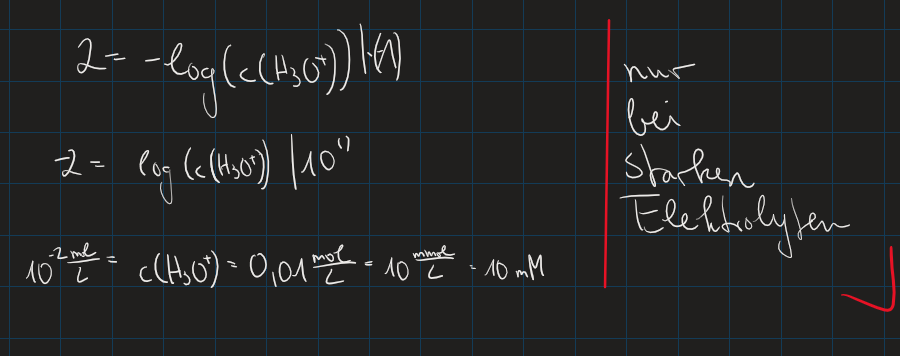 2 = -log(c(H₃O⁺)) |·(-1)
-2 = log(c(H₃O⁺)) |10^()
10⁻² mol/L = c(H₃O⁺) = 0,01 mol/L = 10 mmol/L = 10 mM
nur
bei
starken
Elektrolyten